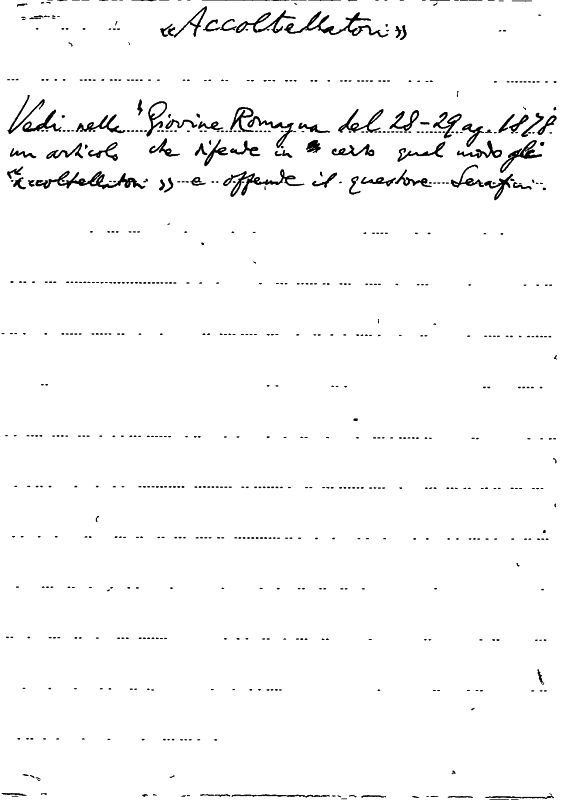 «Accoltellatori»
Vedi nella "Giovine Romagna del 28-29 ag. 1878
un articolo che difende in certo qual modo gli
"accoltellatori» e offende il questore Serafini.